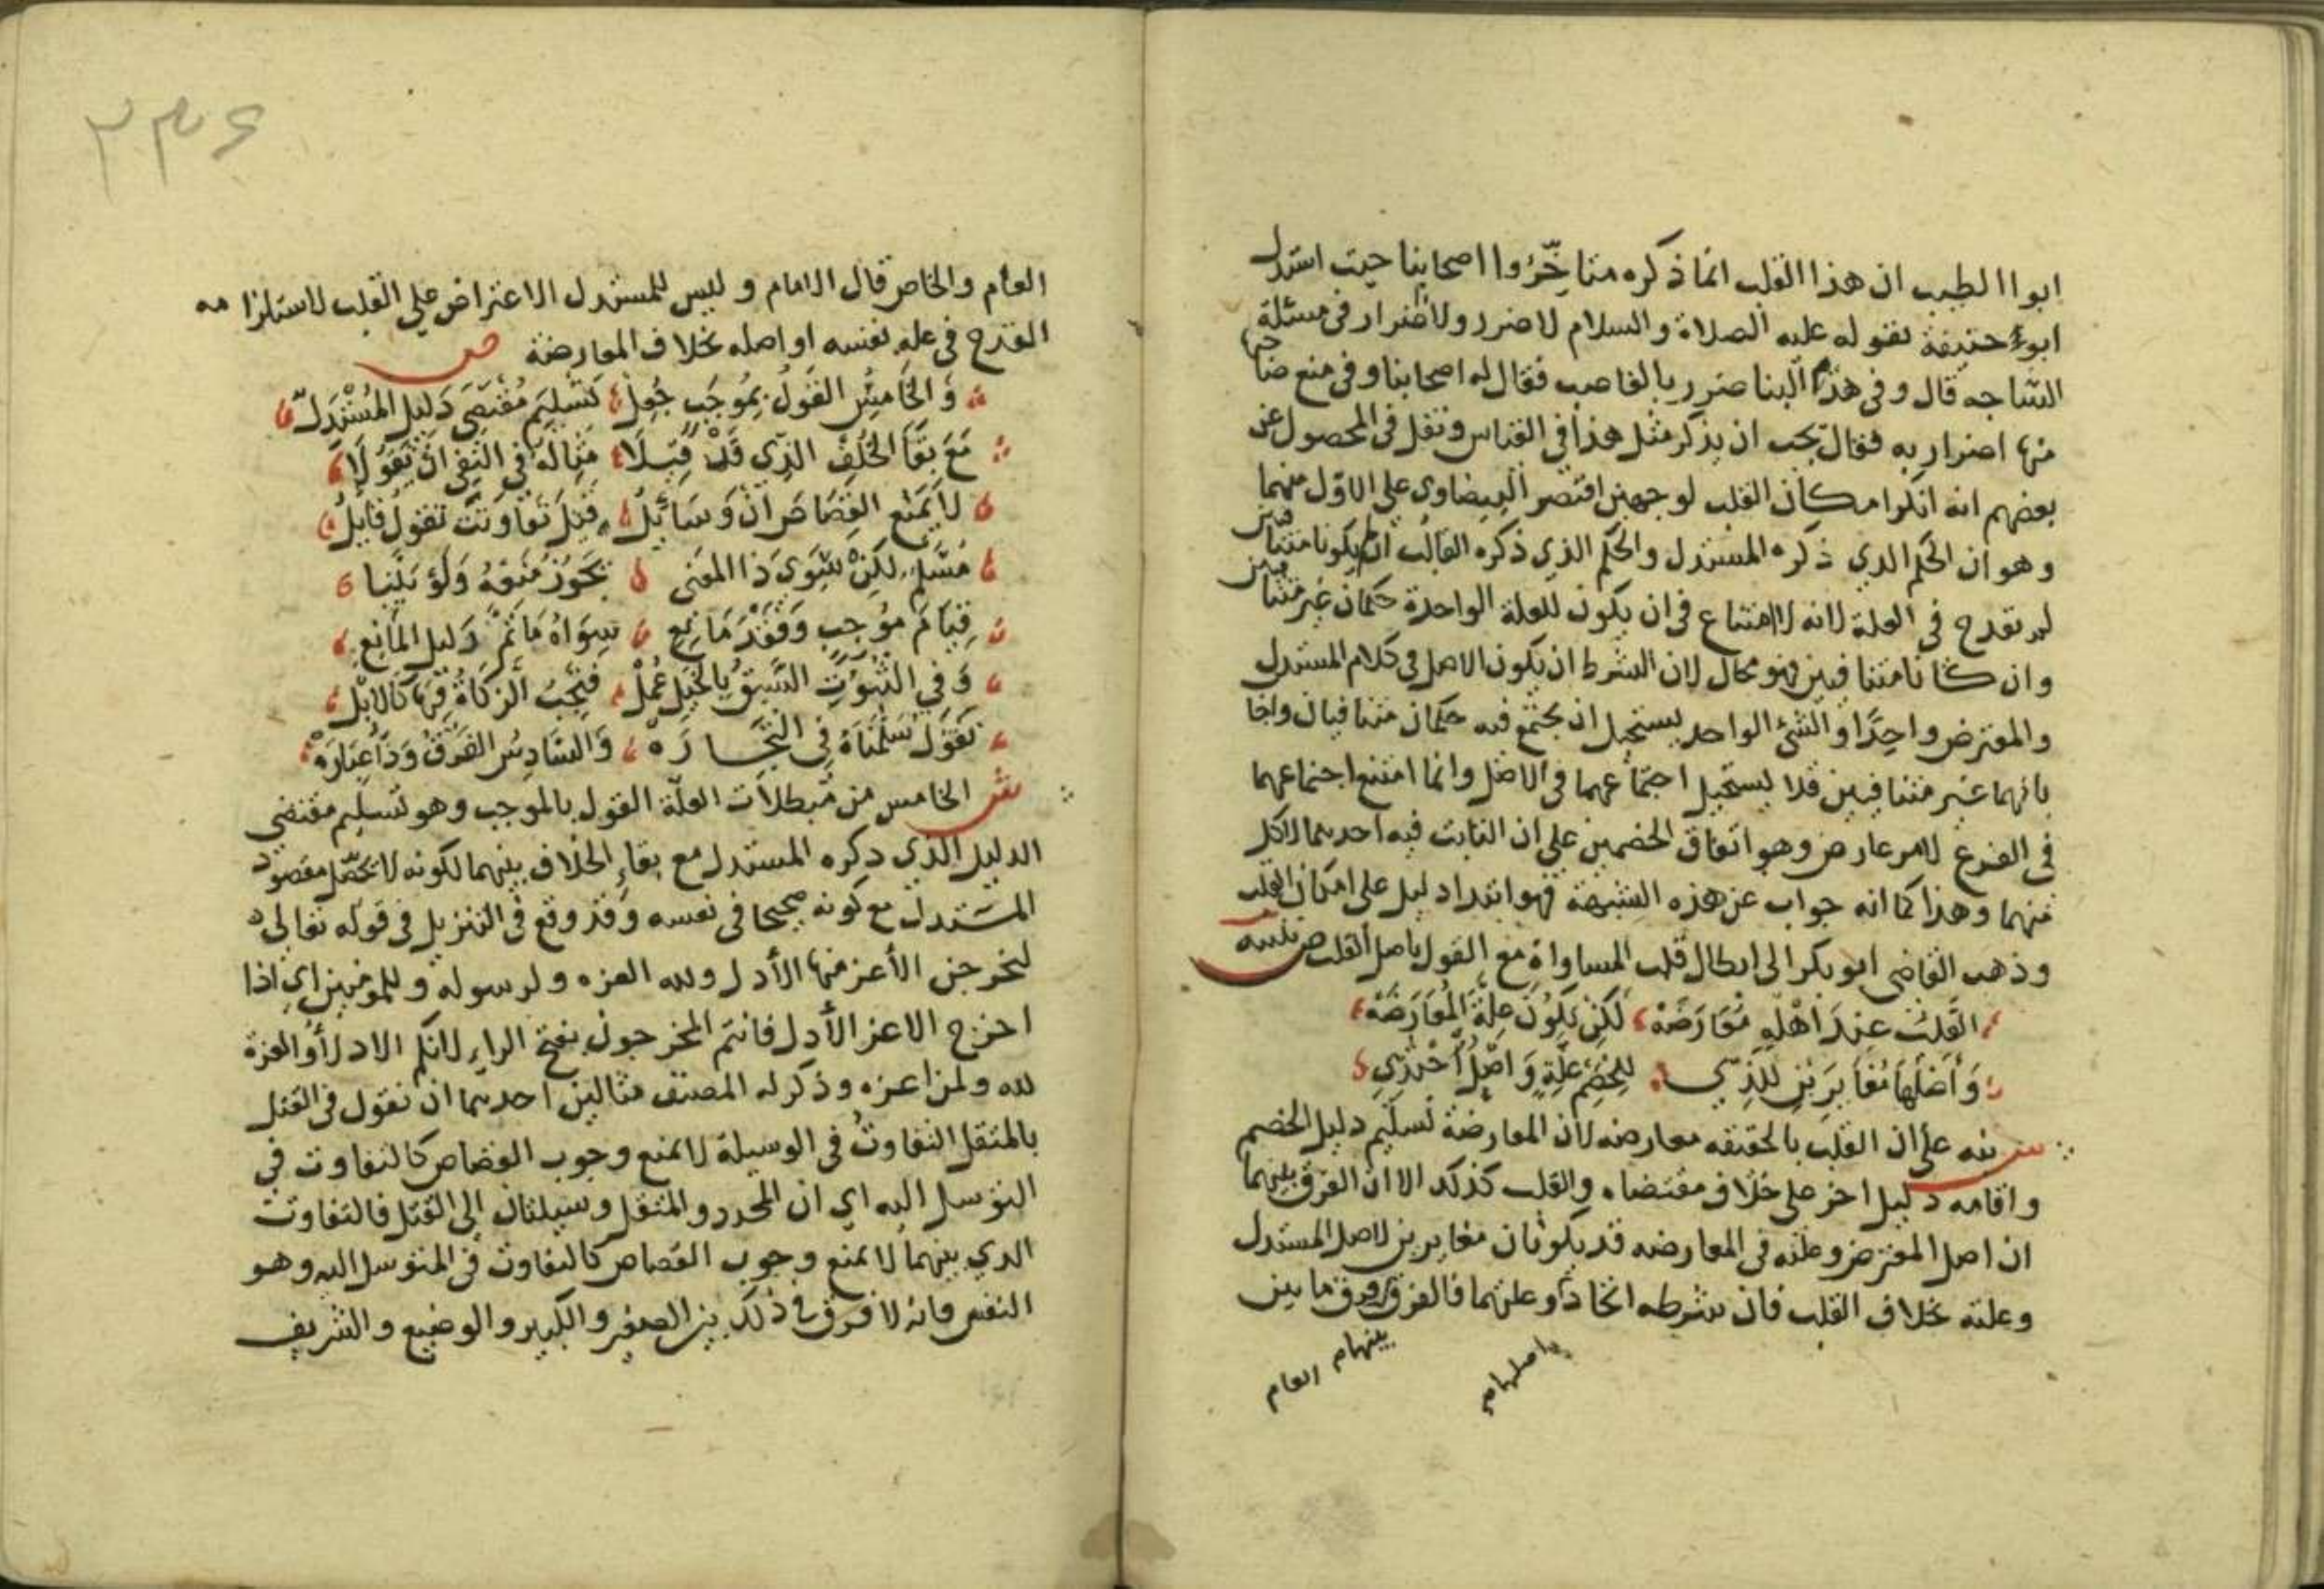 ابواالطيب ان هذا القلب انما ذكره متاخروا اصحابنا حيث استدل
ابو حنيفة بقوله عليه الصلاة والسلام لا ضرر ولا ضرار في مسئلة
الساجه قال وفي هذم البنا ضرر بالغاصب فقال له اصحابنا وفي منع صاحبها
منها اضرار به فقال يجب ان يذكر مثل هذا في القياس ونقل في المحصول عن
بعضهم انه انكر امكان القلب لوجهين اقتصر البيضاوي على الاول منهما
وهو ان الحكم الدي ذكره المستدل والحكم الذي ذكره القالب ان لم يكونا متنافيين
لم تقدح في العلة لانه لا امتناع في ان يكون للعلة الواحدة حكمان غير متنافيين
وان كانا متنافيين فهو محال لان الشرط ان يكون الاصل في كلام المستدل
والمعترض واحدًا والشئ الواحد يستحيل ان يجتمع فيه حكمان متنافيان واجا
بانهما غير متنافيين فلا يستحيل اجتماعهما في الاصل وانما امتنع اجتماعهما
في الفرع لامر عارض وهو اتفاق الخصمين علي ان الثابت فيه احدهما لاكل
منهما وهذا كما انه جواب عن هذه الشبهة فهو ابتدا دليل على امكان القلب
وذهب القاضي ابو بكر الى ابطال قلب المساواة مع القول باصل القلب ص تنبيه
القَلبُ عِندَ اَهْلِهِ مُعَارَضَهْ لَكِنْ تَكُونُ عِلَّةُ المُعَارَضَهْ
وَأَصْلُهَا مُغَايِرَينِ لِلَّذِي لِلخَصْمِ عِلَّةٍ وَاصْلٍ أُخْتُذِي
ش نبه على ان القلب بالحقيقه معارضه لان المعارضة تسليم دليل الخصم
واقامه دليل اخر على خلاف مقتضاه والقلب كذلك الا ان الفرق بينهما
ان اصل المعترض وعلته في المعارضه قد يكونان مغايرين لاصل المستدل
وعلته بخلاف القلب فان شرطه اتحاد وعلتهما فالفرق فرق ما بين
واصليهما
بينهما
العام
٢٣٤
العام والخاص قال الامام وليس للمستدل الاعتراض علي القلب لاستلزامه
القدح في عله نفسه او اصله بخلاف المعارضة ص
وَالخَامِسُ القَوْلُ بِمُوجَبٍ جُعِلْ كَتَسْلِيمِ مُقْتَضَى دَلِيلِ المُسْتَدِلّ
مَعَ بَقَا الخُلْفِ الذِي قَدْ قِيلَا مِثَالُهُ فِي النَفِي انْ تَقُولَا
لَا يَمْنَع القِصَاصَ انْ وَسَائِلُ قَتلٍ تَفَاوَتَتْ تَقُولُ قَايِلُ
مُسَّلمٌ لكِنْ سِوَى ذَا المعَنى يَجُوزُ مَنْعُهُ وَلَوْ بَيَّنَّا
قِيَامَ مُوجِبٍ وَفَقْدَ مَانِعِ سِوَاهُ مَا تَمَّ دَلِيلُ المَانِعِ
وَفِي الثُبُوتِ السَّبقُ بِالخَيلِ عُمِلْ فَتَجِبُ الزكَاةُ فِيهَا كَالابْل
تَقُولُ سَلَّمْنَاهُ فِي التِّجَارَهْ وَالسَّادِسُ الفَرْقُ وَذَا عِبَارَهْ
ش الخامس من مبطلات العلّة القول بالموجب وهو تسليم مقتضي
الدليل الذي دكره المستدل مع بقاء الخلاف بينهما لكونه لا يحصّل مقصود
المستدل مع كونه صحيحا في نفسه وقد وقع في التنزيل في قوله تعالى
ليخرجن الأعز منها الأدل ولله العزه ولرسوله وللمومنين اي اذا
اخرج الاعز الأدل فانتم المخرجون بفتح الراء لانكم الادل او العزة
لله ولمن اعزه وذكر له المصنف مثالين احدهما ان تقول في القتل
بالمثقل التفاوت في الوسيلة لا يمنع وجوب القصاص كالتفاوت في
التوسل اليه اي ان المحدد والمثقل وسيلتان الى القتل فالتفاوت
الدي بينهما لا يمنع وجوب القصاص كالتفاوت في المتوسل اليه وهو
النفس فانه لا فرق في ذلك بين الصغير والكبير والوضيع والشريف